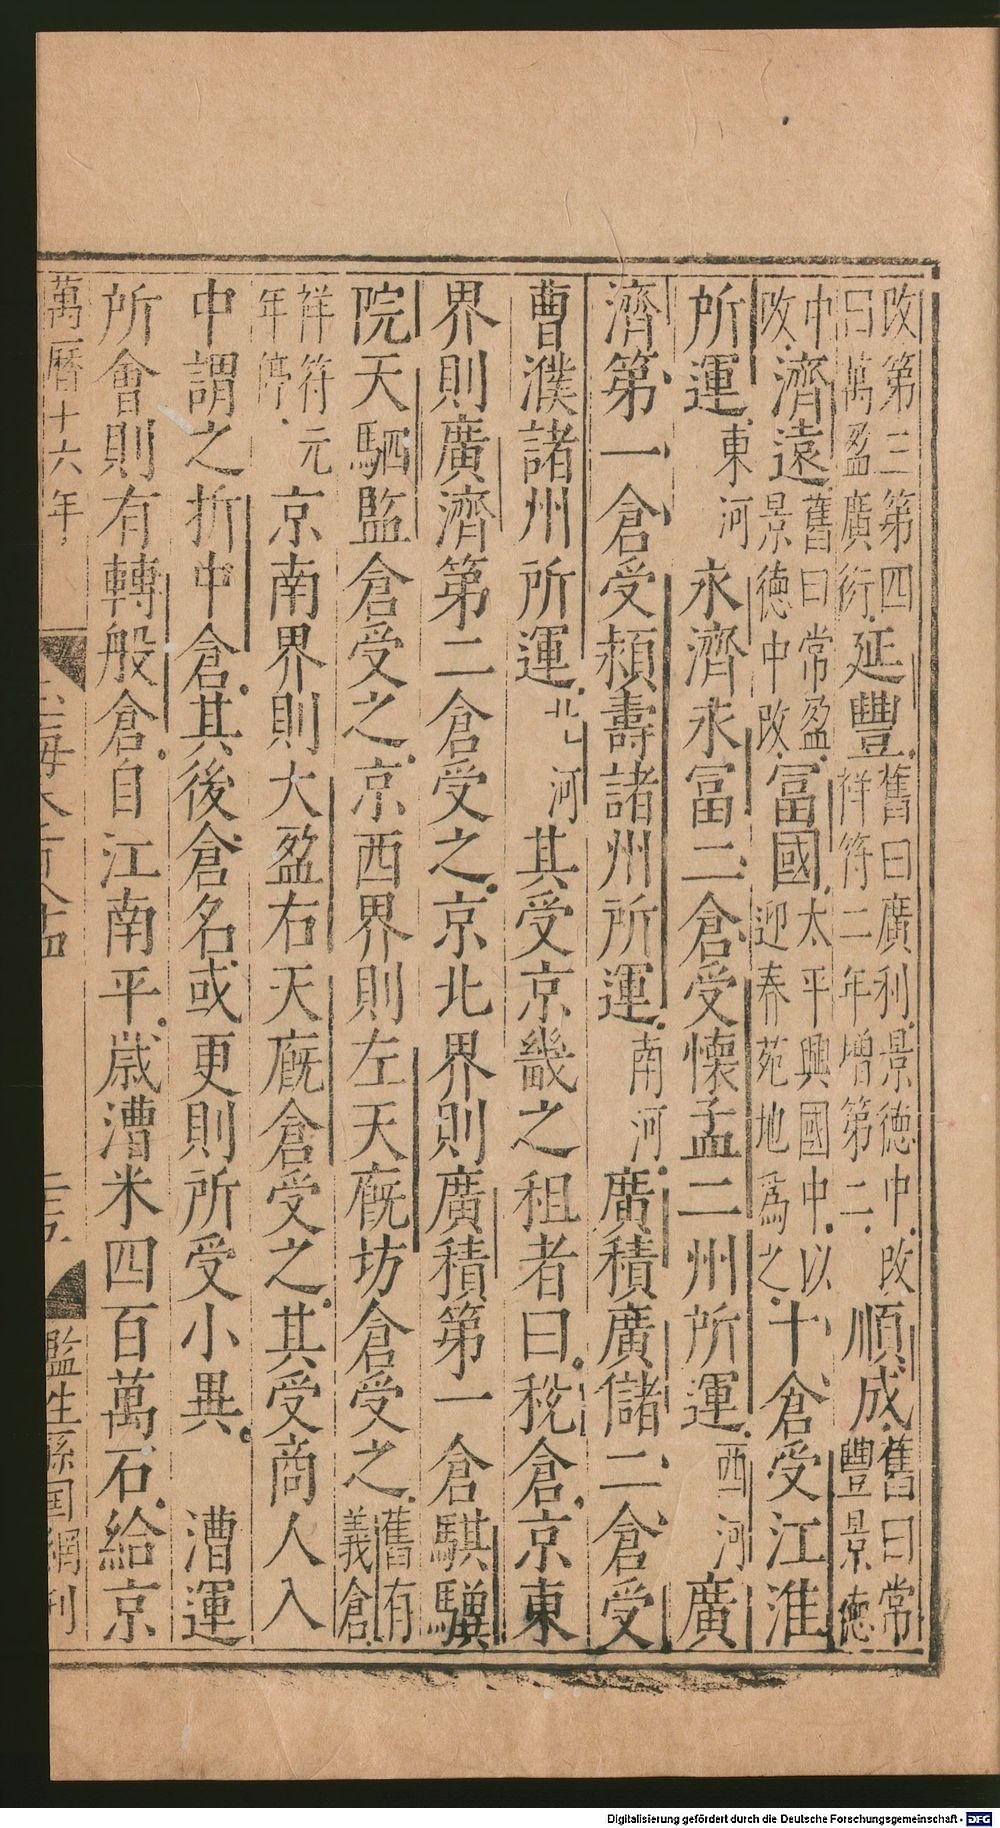 改第三第四曰萬盈廣衍延豐舊曰廣利景德中改祥符二年增第二順成舊曰常豐景德
中改濟遠舊曰常盈景德中改富國太平興國中以迎春苑地爲之十倉受江淮
所運東河永濟永富二倉受懷孟二州所運西河廣
濟第一倉受潁壽諸州所運南河廣積廣儲二倉受
曹濮諸州所運北河其受京畿之租者曰稅倉京東
界則廣濟第二倉受之京北界則廣積第一倉騏驥
院天駟監倉受之京西界則左天廐坊倉受之舊有義倉
祥符元年停京南界則大盈右天廐倉受之其受商人入
中謂之折中倉其後倉名或更則所受小異 漕運
所會則有轉般倉自江南平歲漕米四百萬石給京
萬曆十六年
監生孫国綱刊
Digitalisierung gefördert durch die Deutsche Forschungsgemeinschaft - DFG